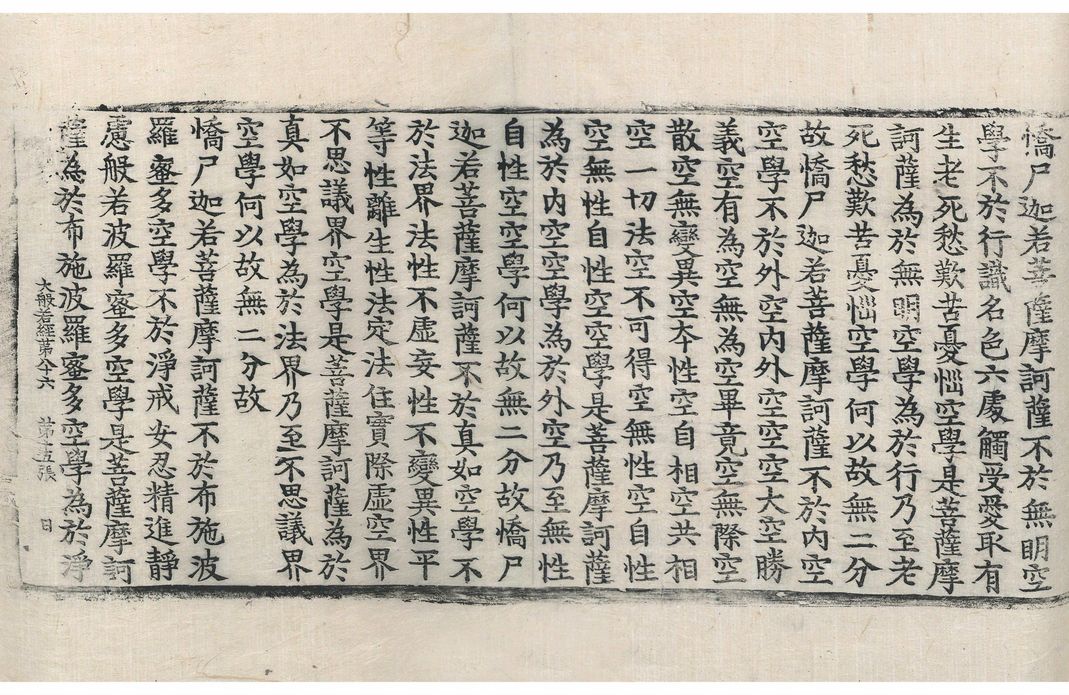 憍尸迦若菩薩摩訶薩不於無明空
學不於行識名色六處觸受愛取有
生老死愁歎苦憂惱空學是菩薩摩
訶薩為於無明空學為於行乃至老
死愁歎苦憂惱空學何以故無二分
故憍尸迦若菩薩摩訶薩不於內空
空學不於外空內外空空空大空勝
義空有為空無為空畢竟空無際空
散空無變異空本性空自相空共相
空一切法空不可得空無性空自性
空無性自性空空學是菩薩摩訶薩
為於內空空學為於外空乃至無性
自性空空學何以故無二分故憍尸
迦若菩薩摩訶薩不於真如空學不
於法界法性不虛妄性不變異性平
等性離生性法定法住實際虛空界
不思議界空學是菩薩摩訶薩為於
真如空學為於法界乃至不思議界
空學何以故無二分故
憍尸迦若菩薩摩訶薩不於布施波
羅蜜多空學不於淨戒安忍精進靜
慮般若波羅蜜多空學是菩薩摩訶
薩為於布施波羅蜜多空學為於淨
大般若經第八十六 第十五張 日